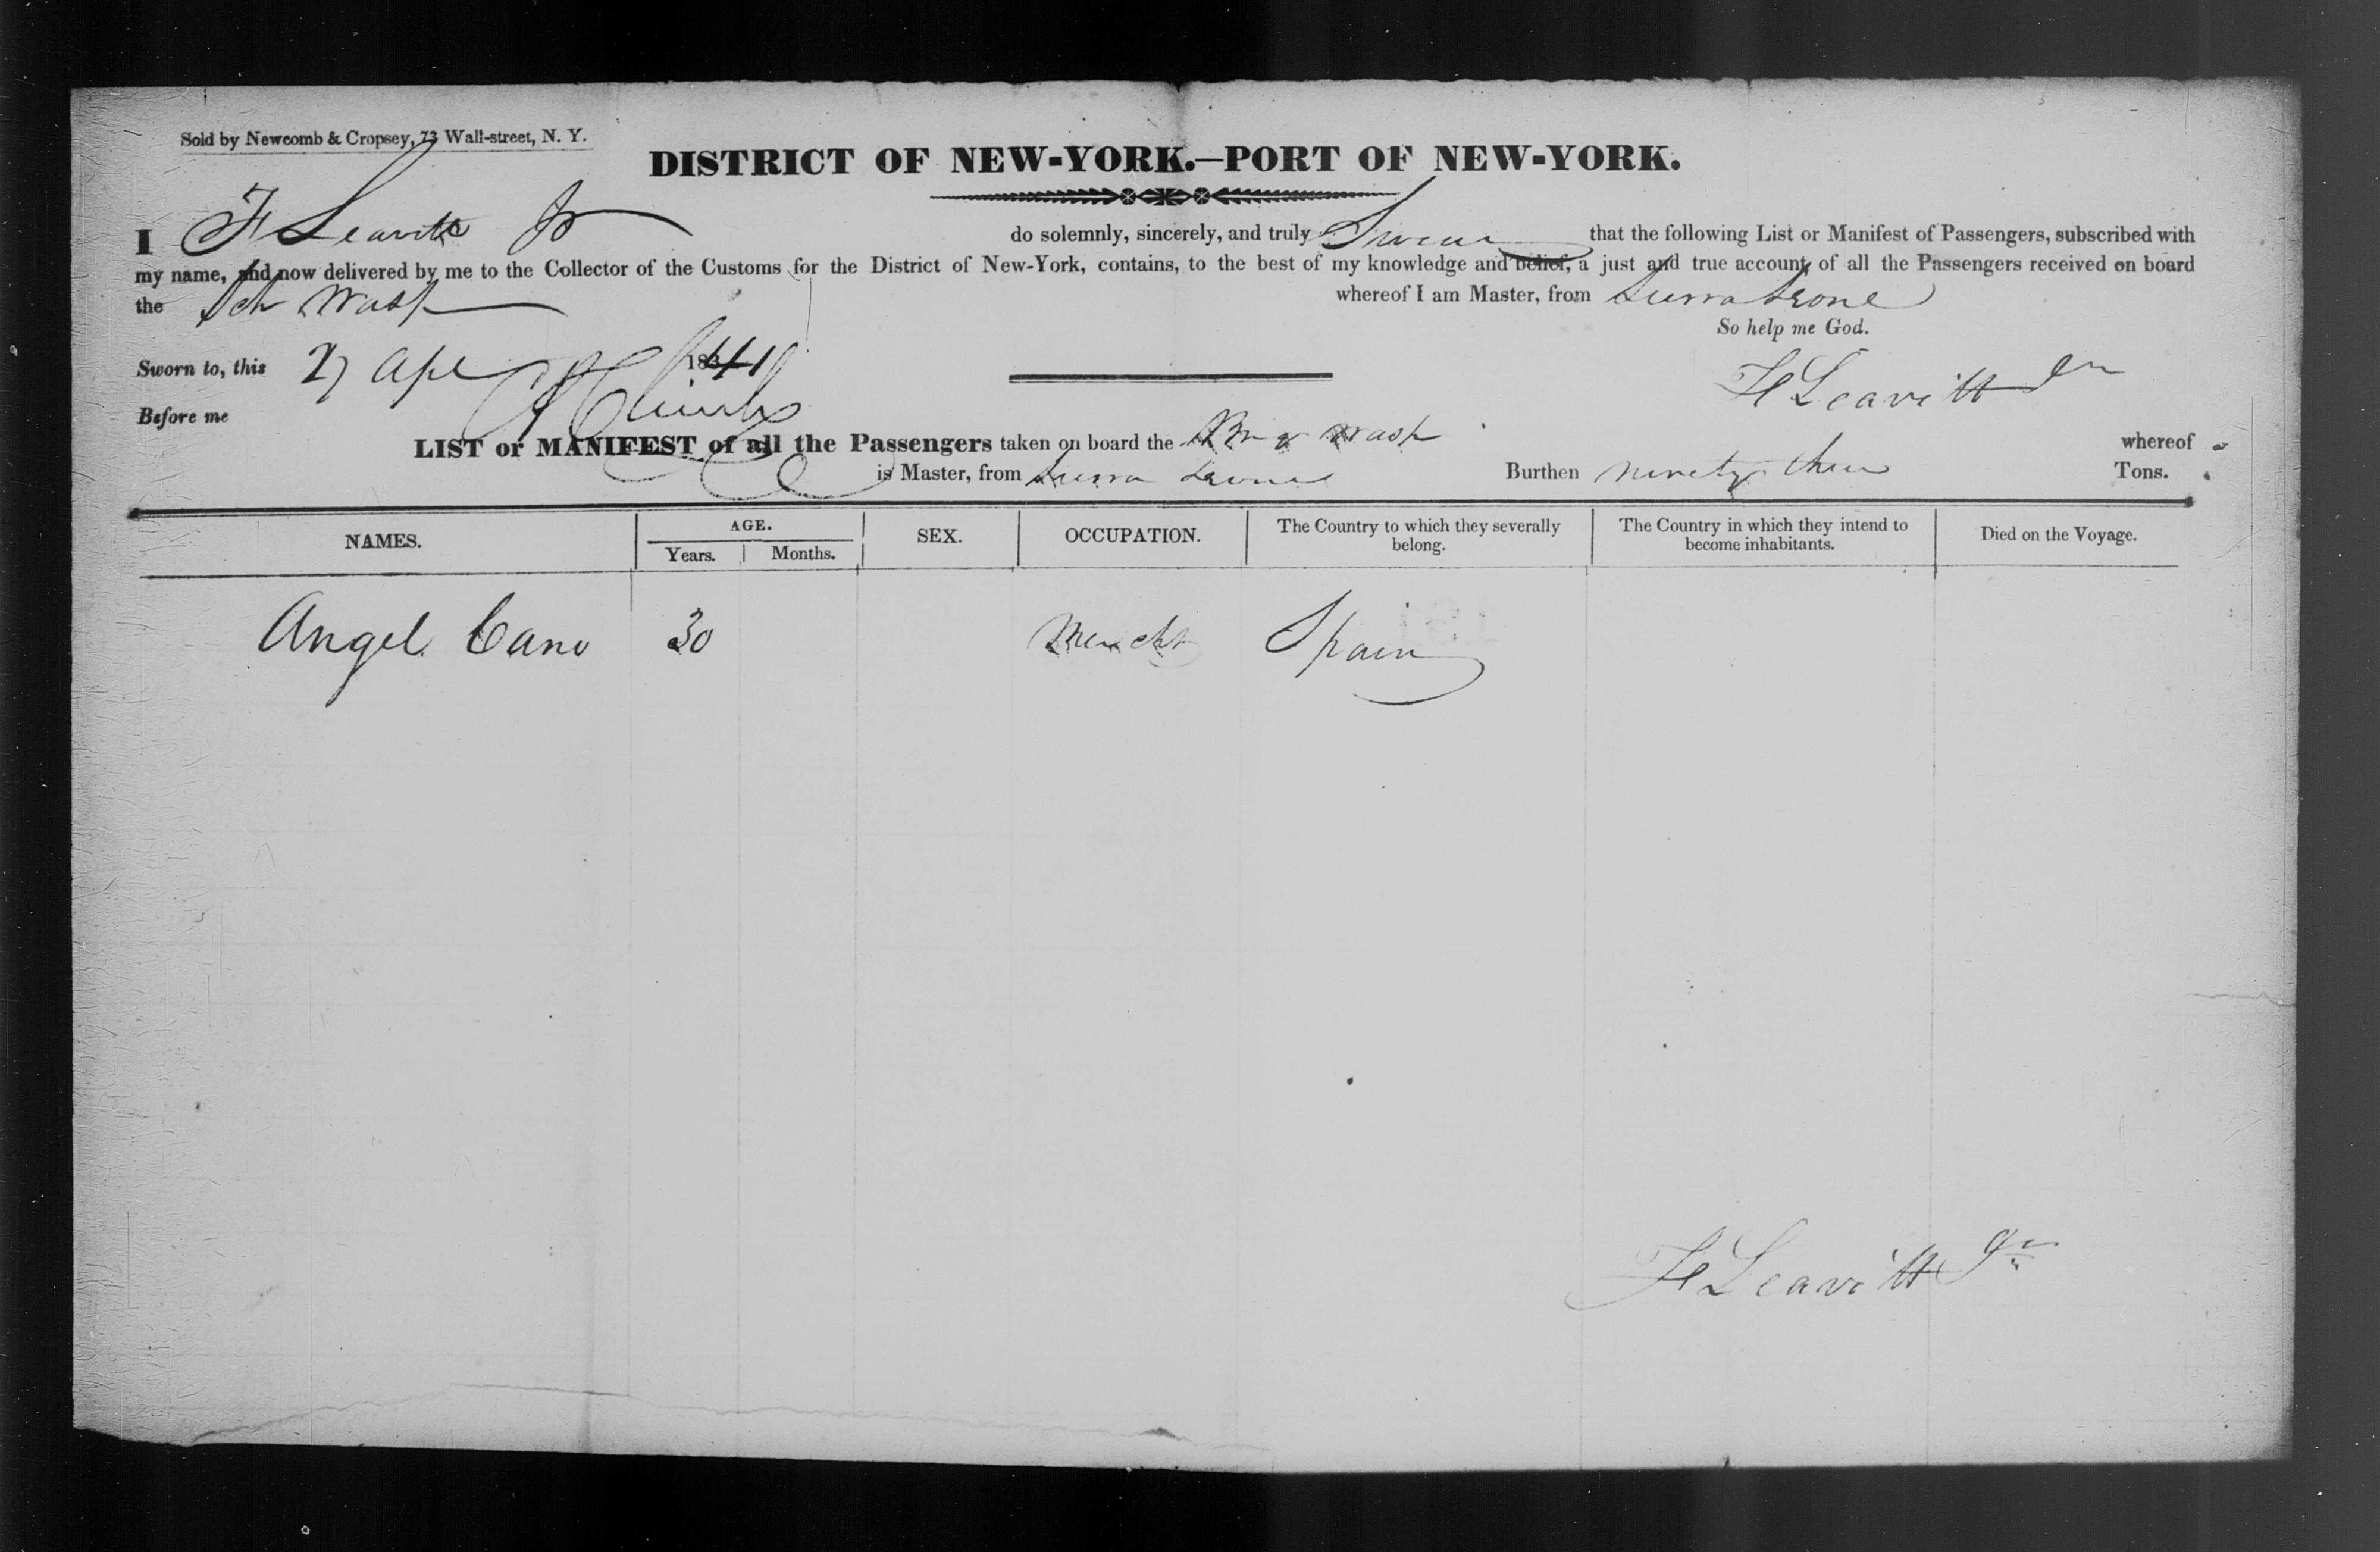 Sold by Newcomb & Cropsey, 73 Wall-street, N. Y.
DISTRICT OF NEW-YORK.—PORT OF NEW-YORK.
I F Leavitt Jr do solemnly, sincerely, and truly Swear that the following List or Manifest of Passengers, subscribed with
my name, and now delivered by me to the Collector of the Customs for the District of New-York, contains, to the best of my knowledge and belief, a just and true account of all the Passengers received on board
the Sch Wasp whereof I am Master, from Sierra Leone
So help me God.
Sworn to, this 27 Apl 1841
F Leavitt Jr
Before me
LIST or MANIFEST of all the Passengers taken on board the Brig Wasp whereof
is Master, from Sierra Leone Burthen ninety three Tons.
NAMES. AGE. SEX. OCCUPATION. The Country to which they severally belong. The Country in which they intend to become inhabitants. Died on the Voyage.
Years. Months.
Angel Cano 30 Mercht Spain
F Leavitt Jr